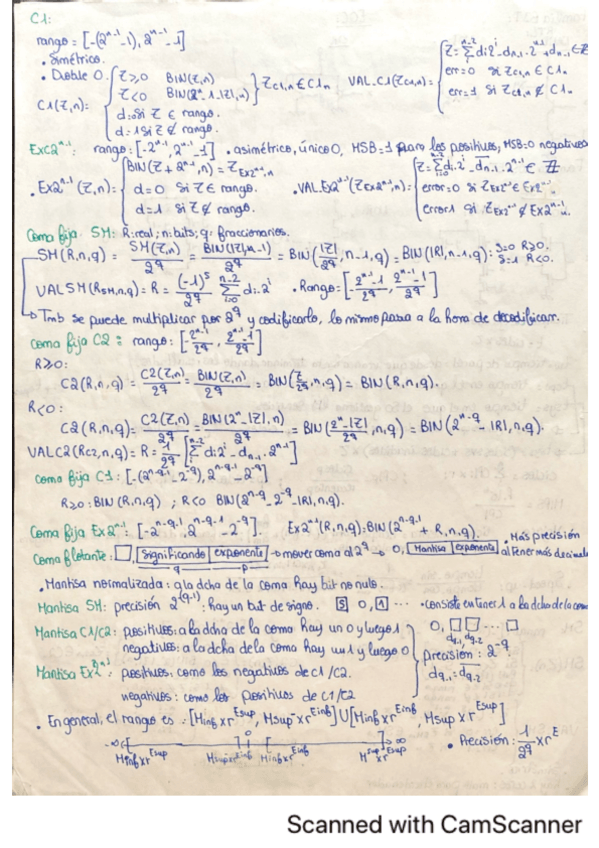 C1:
rango = [-(2^(n-1)-1), 2^(n-1)-1]
• Simétrico.
• Doble 0.
C1(Z,n): { Z≥0 BIN(Z,n)
Z<0 BIN(2^n-1-|Z|,n) } Z_C1,n ∈ C1n
d=0 si Z ∈ rango.
d=1 si Z ∉ rango.
VAL_C1(Z_C1,n)= { Z=∑di2^i - d_n-1·2^(n-1)+d_n-1 ∈ Z
err=0 si Z_C1,n ∈ C1n
err=1 si Z_C1,n ∉ C1n
Exc2^(n-1): rango: [-2^(n-1), 2^(n-1)-1] • asimétrico, único 0, MSB=1 para los positivos, MSB=0 negativos
• Ex2^(n-1)(Z,n): { BIN(Z+2^(n-1),n)=Z_Ex2^(n-1),n
d=0 si Z∈ rango.
d=1 si Z∉ rango.
• VAL.Ex2^(n-1)(Z_Ex2^(n-1),n)= { Z=∑di·2^i - d_n-1·2^(n-1) ∈ Z
error=0 si Z_Ex2^(n-1) ∈ Ex2^(n-1).
error1 si Z_Ex2^(n-1) ∉ Ex2^(n-1)n.
Coma fija. SM: R:real; n:bits; q: fraccionarios.
SM(R,n,q) = SM(Z,n)/2^q = BIN(|Z|,n-1)/2^q = BIN(|Z|/2^q, n-1, q) = BIN(|R|, n-1, q): S=0 R≥0. S=1 R<0.
VALSM(R_SM,n,q) = R = (-1)^S/2^q ∑di·2^i • Rango: [-(2^(n-1)-1)/2^q, (2^(n-1)-1)/2^q]
Tmb se puede multiplicar por 2^q y codificarlo, lo mismo pasa a la hora de decodificar.
Coma fija C2: rango: [-2^(n-1)/2^q, (2^(n-1)-1)/2^q]
R≥0:
C2(R,n,q) = C2(Z,n)/2^q = BIN(Z,n)/2^q = BIN(Z/2^q, n, q) = BIN(R,n,q).
R<0:
C2(R,n,q) = C2(Z,n)/2^q = BIN(2^n-|Z|,n)/2^q = BIN((2^n-|Z|)/2^q, n, q) = BIN(2^(n-q)-|R|, n, q).
VALC2(R_C2,n,q) = R = 1/2^q [∑di2^i - d_n-1·2^(n-1)]
Coma fija C1: [-(2^(n-q-1)-2^-q), 2^(n-q-1)-2^-q]
R≥0: BIN(R,n,q) ; R<0 BIN(2^(n-q)-2^-q-|R|,n,q).
Coma fija Ex2^(n-1) [-2^(n-q-1), 2^(n-q-1)-2^-q]. Ex2^(n-1)(R,n,q): BIN(2^(n-q-1) + R,n,q).
Coma flotante: □, Significando exponente → mover coma al 2^q → 0, Mantisa exponente • Más precisión al tener más decimales
q p
• Mantisa normalizada: a la dcha de la coma hay bit no nulo.
Mantisa SM: precisión 2^-(q-1): hay un bit de signo. S 0,1 ... • consiste en tener 1 a la dcha de la coma
Mantisa C1/C2: positivos: a la dcha de la coma hay un 0 y luego 1
negativos: a la dcha de la coma hay un 1 y luego 0
0, □□ ... □
d_q-1 d_q-2
Precisión: 2^-q
d_q-1 = d_q-2
Mantisa Ex2^q-1: positivos: como los negativos de C1/C2.
negativos: como los positivos de C1/C2
• En general, el rango es: [Minf x r^Esup, Msup x r^Einf] U [Minf x r^Einf, Msup x r^Esup]
-∞ 0 ∞
Minf x r^Esup Msup x r^Einf Minf x r^Einf Msup x r^Esup
• Precisión: 1/2^q x r^E
Scanned with CamScanner